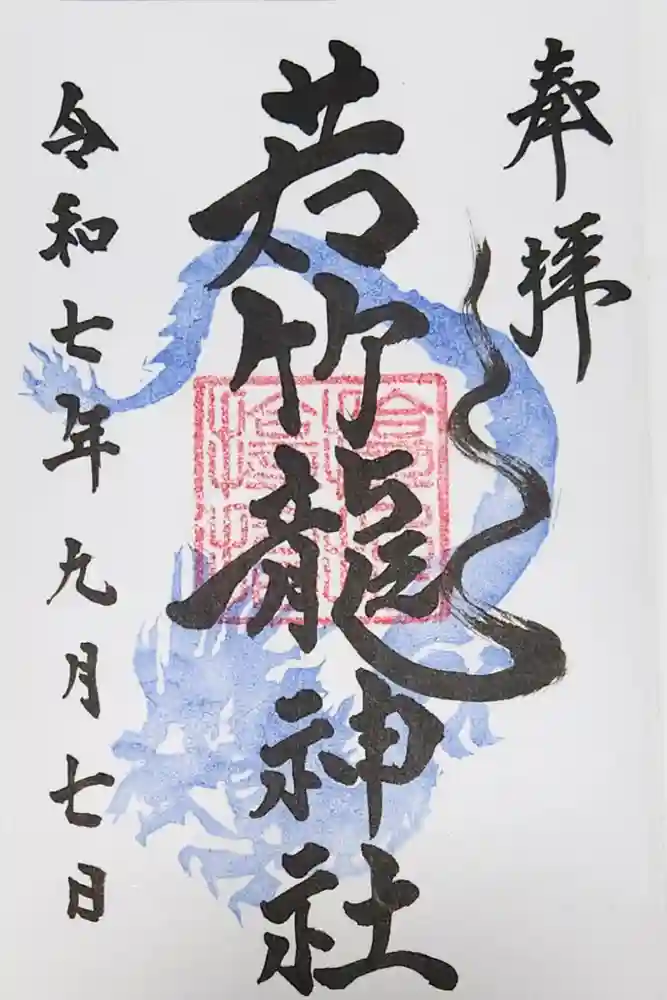 奉拝
若竹龍神社
令和七年九月七日